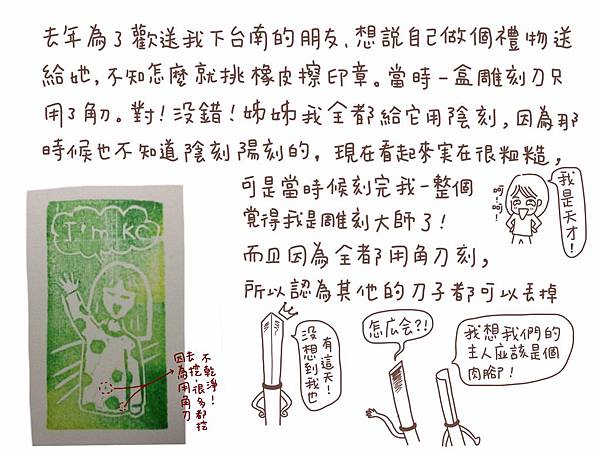 去年為了歡送我下台南的朋友、想說自己做個禮物送
給她，不知怎麼就挑橡皮擦印章。當時一盒雕刻刀只
用3角刀。對！沒錯！姊姊我全都給它用陰刻，因為那
時候也不知道陰刻陽刻的，現在看起來実在很粗糙，
可是當時候刻完我一整個
覺得我是雕刻大師了！
而且因為全都用角刀刻，
所以認為其他的刀子都可以丟掉
呵！呵！
我是天才！
I'm KC
因為用角刀
去挖，很多都挖
不乾淨！
有這天！
沒想到我也
怎広会?!
我想我們的
主人应該是個
肉腳！